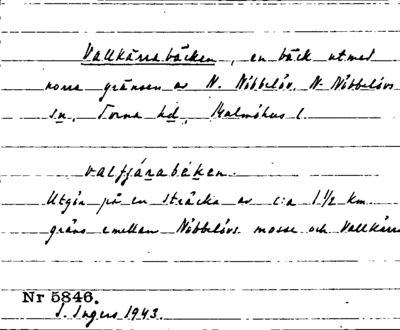 Vallkärrabäcken, en bäck utmed
norra gränsen av N. Nöbbelöv, N. Nöbbelövs
sn, Torna hd, Malmöhus l.
valfjárabä́ken.
Utgör på en sträcka av c:a 1 1/2 km
gräns emellan Nöbbelövs mosse och Vallkärra
Nr 5846.
S. Ingers 1943.